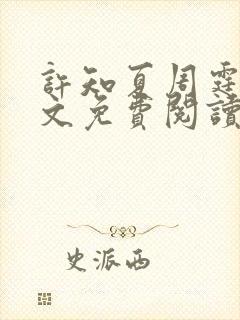 許知夏周霆
文免費閱讀
史派西